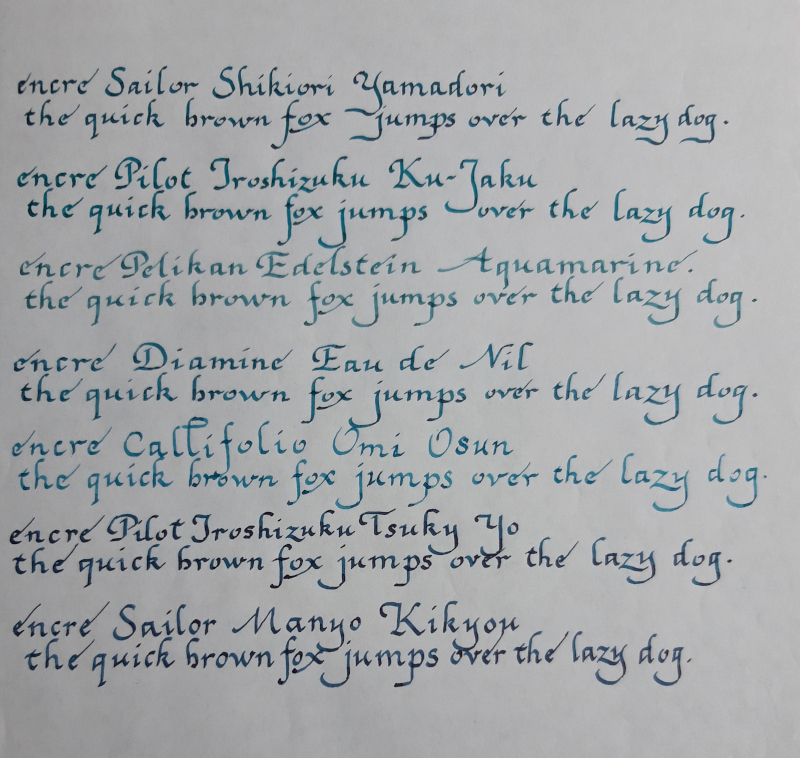 encre Sailor Shikiori Yamadori
the quick brown fox jumps over the lazy dog.
encre Pilot Iroshizuku Ku-Jaku
the quick brown fox jumps over the lazy dog.
encre Pelikan Edelstein Aquamarine.
the quick brown fox jumps over the lazy dog.
encre Diamine Eau de Nil
the quick brown fox jumps over the lazy dog.
encre Callifolio Omi Osun
the quick brown fox jumps over the lazy dog.
encre Pilot Iroshizuku Tsuky Yo
the quick brown fox jumps over the lazy dog.
encre Sailor Manyo Kikyou
the quick brown fox jumps over the lazy dog.